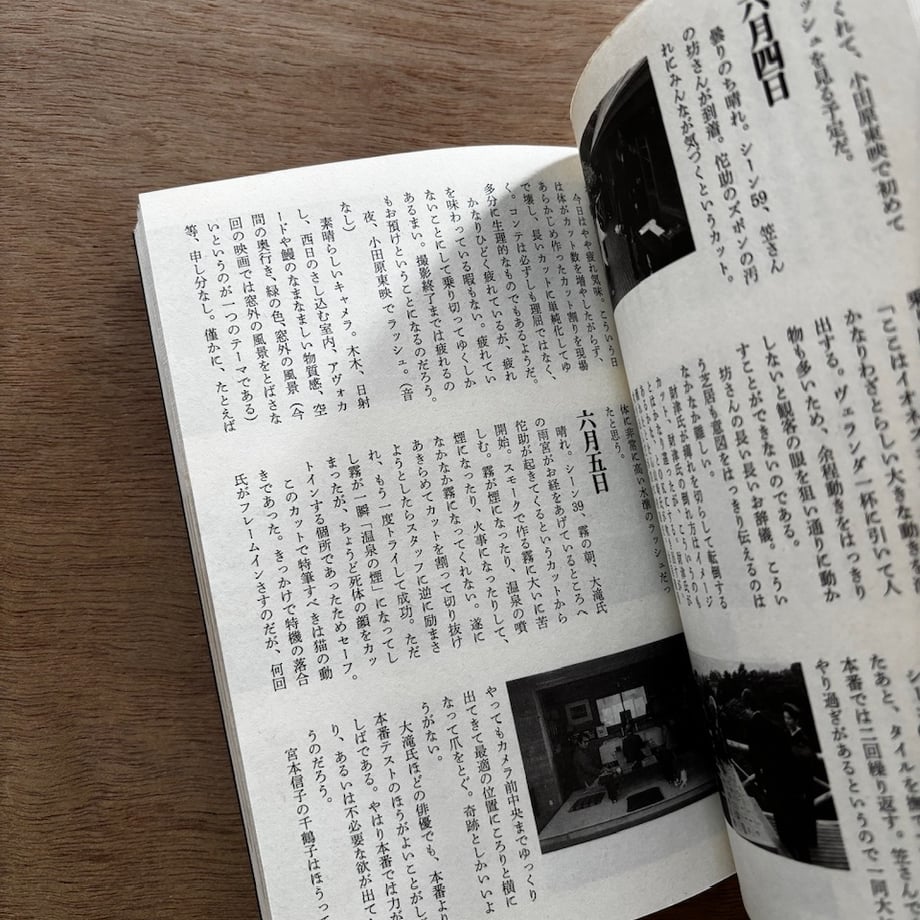 くれて、小田原東映で初めて
ッシュを見る予定だ。
六月四日
曇りのち晴れ。シーン59、笠さん
の坊さんが到着。侘助のズボンの汚
れにみんなが気づくというカット。
「ここはイオ
かなりわざとらしい大きな動
出する。ヴェランダ一杯に引いて人
物も多いため、余程動きをはっきり
しないと観客の眼を狙い通りに動か
すことができないのである。
坊さんの長い長いお辞儀。こうい
う芝居も意図をはっきり伝えるのは
なかなか難しい。
財津氏が痺れを切らして転倒する
たあと、タイルを
本番では二回繰り返す。笠さんで
やり過ぎがあるというので一同大
今日はやや疲れ気味。こういう日
は体がカット数を増やしたがらず、
あらかじめ作ったカット割りを現場
で壊し、長いカットに単純化してゆ
く。コンテは必ずしも理屈ではなく、
多分に生理的なものでもあるようだ。
かなりひどく疲れているが、疲れ
を味わっている暇もない。疲れてい
ないことにして乗り切ってゆくしか
あるまい。撮影終了までは疲れるの
もお預けということになるのだろう。
夜、小田原東映でラッシュ。（音
なし）
素晴らしいキャメラ。木木、日射
し、西日のさし込む室内、アヴォカ
ードや鰻のなまなましい物質感、空
間の奥行き、緑の色、窓外の風景（今
回の映画では窓外の風景をとばさな
いというのが一つのテーマである）
等、申し分なし。僅かに、たとえば
体に非常に高い水準のラッシュだっ
たと思う。
六月五日
晴れ。シーン39、霧の朝、大滝氏
の雨宮がお経をあげているところへ
侘助が起きてくるというカットから
開始。スモークで作る霧に大いに苦
しむ。霧が煙になったり、温泉の噴
煙になったり、火事になったりして、
なかなか霧になってくれない。遂に
あきらめてカットを割って切り抜け
ようとしたらスタッフに逆に励まさ
れ、もう一度トライして成功。ただ
し霧が一瞬「温泉の煙」になってし
まったが、ちょうど死体の顔をカッ
トインする個所であったためセーフ。
このカットで特筆すべきは猫の動
きであった。きっかけで特機の落合
氏がフレームインさすのだが、何回
やってもカメラ前中央までゆっくり
出てきて最適の位置にころりと横に
なって爪をとぐ。奇跡としかいいよ
うがない。
大滝氏ほどの俳優でも、本番より
本番テストのほうがよいことがし
しばである。やはり本番では力が
り、あるいは不必要な欲が出て
うのだろう。
宮本信子の千鶴子はほうって